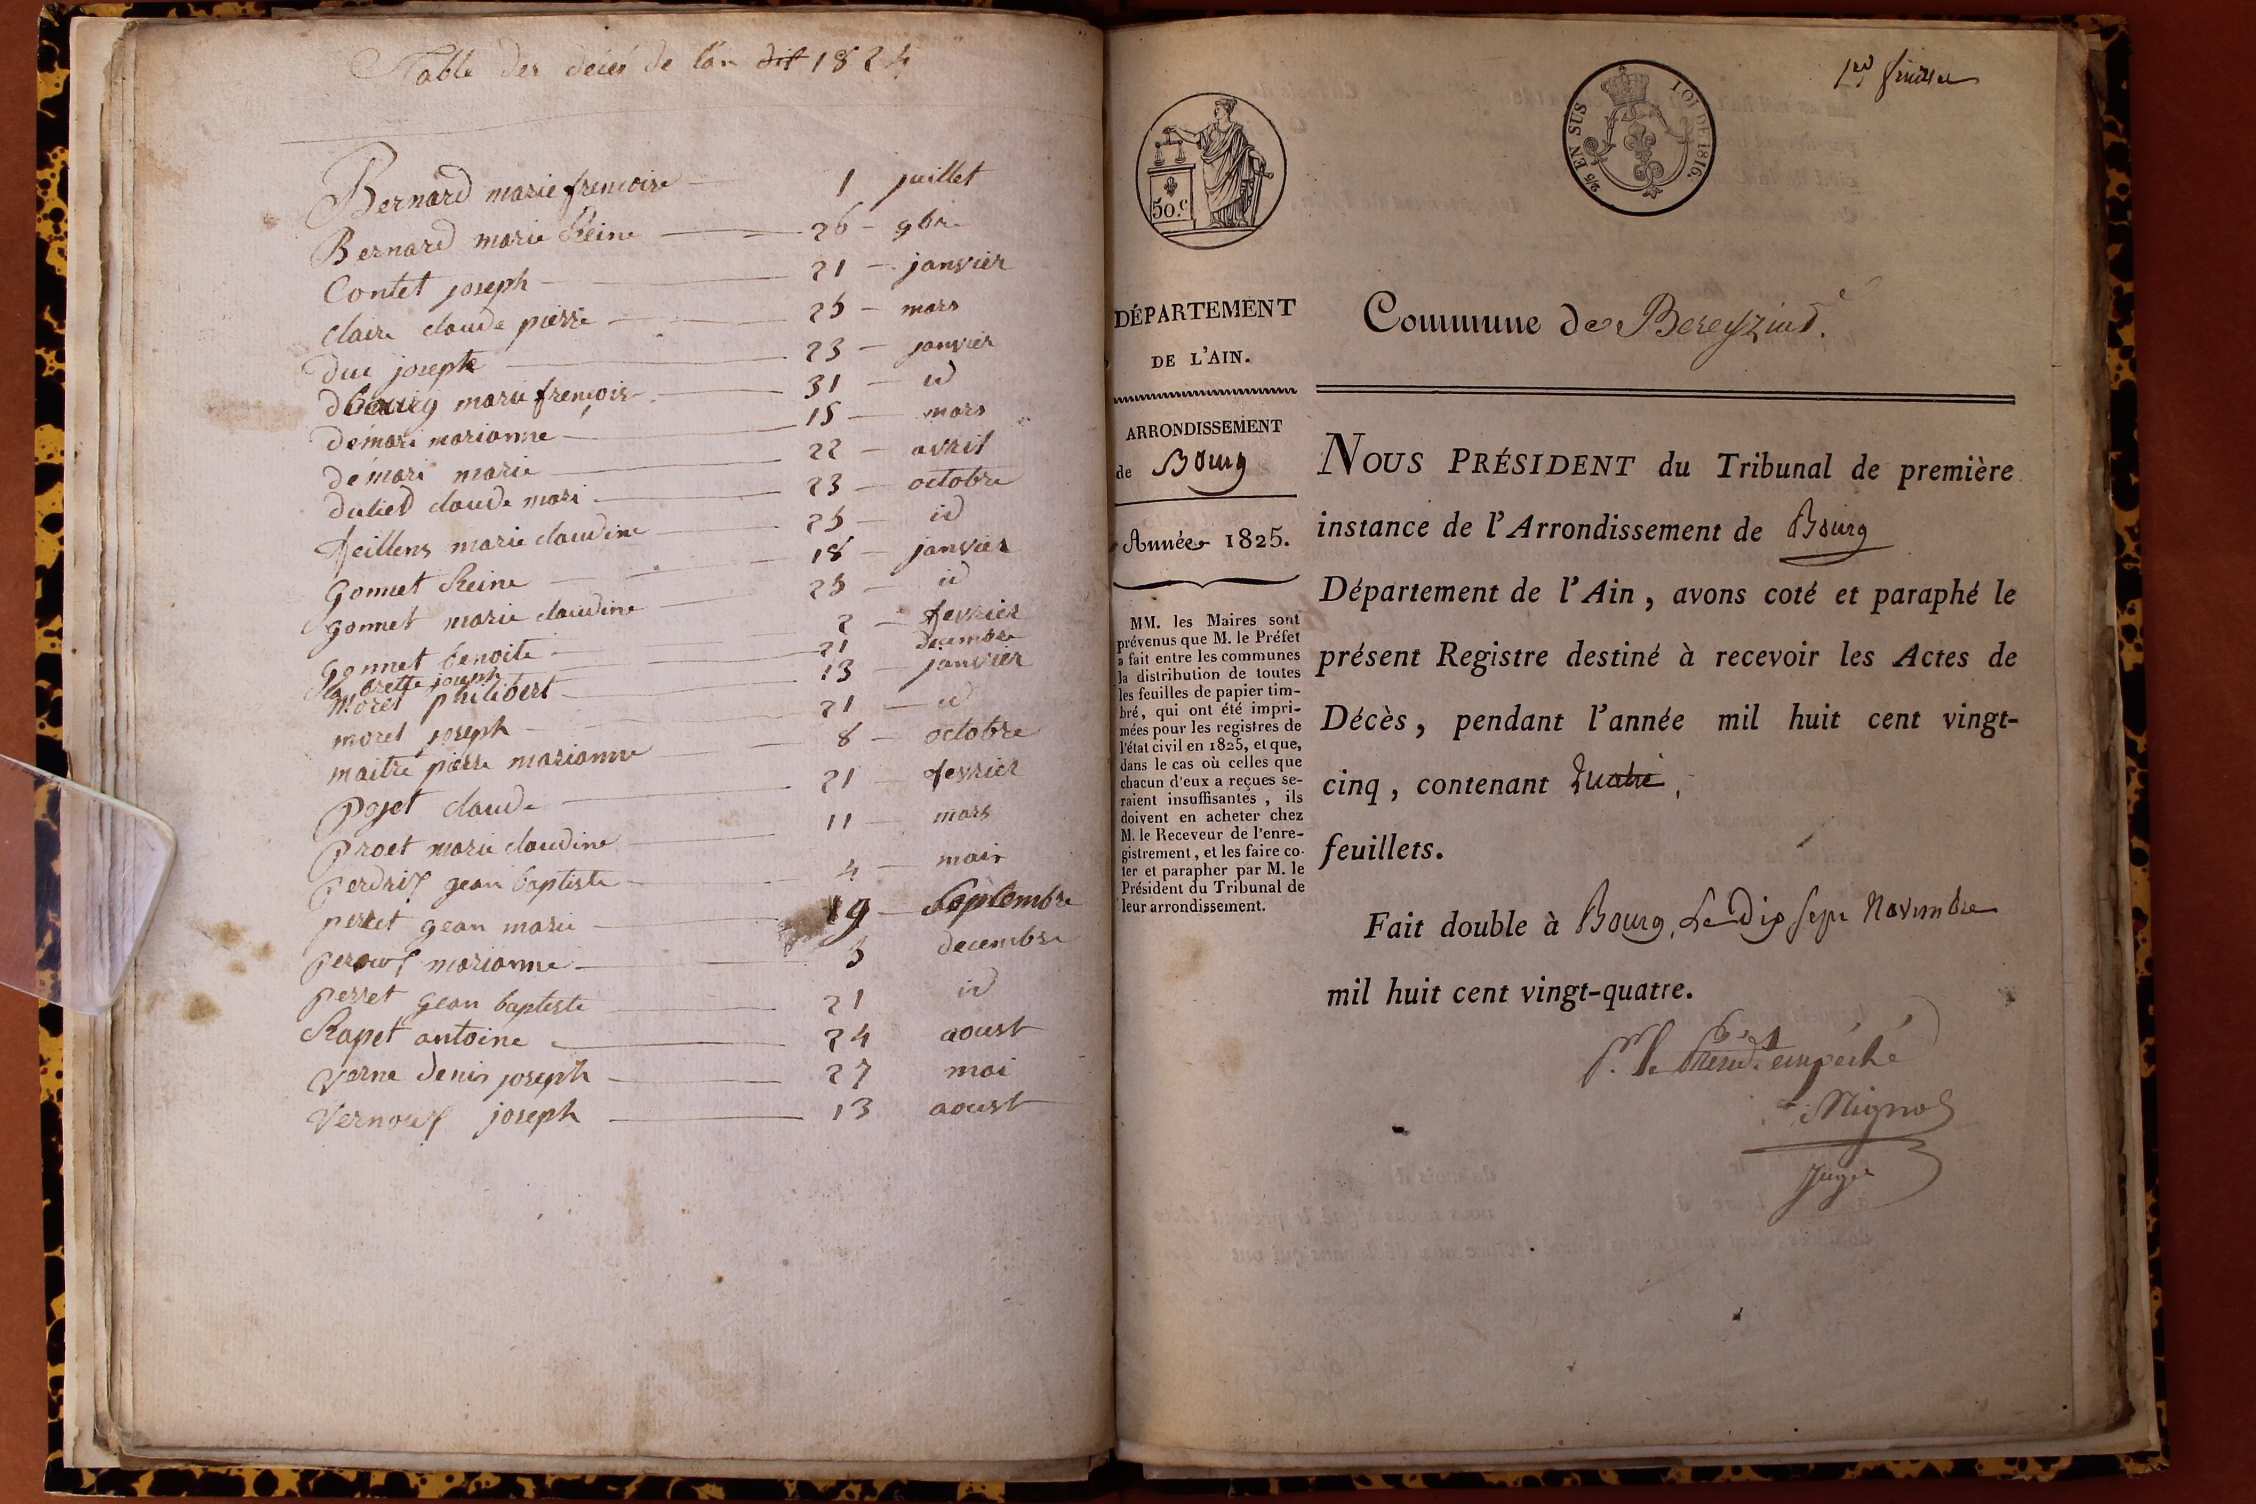 Table des décés de l'an dit 1824
Bernard marie frencoise 1 juillet
Bernard marie Reine 26 9bre
Contet joseph 21 janvier
Claire claude pierre 25 mars
duc joseph 23 janvier
dbourg marie françois 31 id
démari marianne 15 mars
démari marie 22 avril
duliev claude mari 23 octobre
feillens marie claudine 25 id
gonnet Reine 18 janvier
gonnet marie claudine 25 id
gonnet benoite 2 fevrier
la brette joseph 21 decembre
morel philibert 13 janvier
morel joseph 21 id
maitre pierre marianne 8 octobre
Pojet claude 21 fevrier
Proet marie claudine 11 mars
perdrix gean baptiste 4 mair
perret gean marie 19 Septembre
peroux marianne 3 decembre
perret gean baptiste 21 id
Rapet antoine 24 aoust
Verne denis joseph 27 mai
Vernoux joseph 13 aoust
50.c
2/5 EN SUS
LOI DE 1816.
1er feuillet
DÉPARTEMENT
DE L'AIN.
ARRONDISSEMENT
de Bourg
Année 1825.
MM. les Maires sont
prévenus que M. le Préfet
a fait entre les communes
la distribution de toutes
les feuilles de papier tim-
bré, qui ont été impri-
mées pour les registres de
l'état civil en 1825, et que,
dans le cas où celles que
chacun d'eux a reçues se-
raient insuffisantes, ils
doivent en acheter chez
M. le Receveur de l'enre-
gistrement, et les faire co-
ter et parapher par M. le
Président du Tribunal de
leur arrondissement.
Commune de Bereyziat.
NOUS PRÉSIDENT du Tribunal de première
instance de l'Arrondissement de Bourg
Département de l'Ain, avons coté et paraphé le
présent Registre destiné à recevoir les Actes de
Décès, pendant l'année mil huit cent vingt-
cinq, contenant quatre
feuillets.
Fait double à Bourg, Le Dix sept Novembre
mil huit cent vingt-quatre.
pr. le présidt empéché
Mignot
Juge